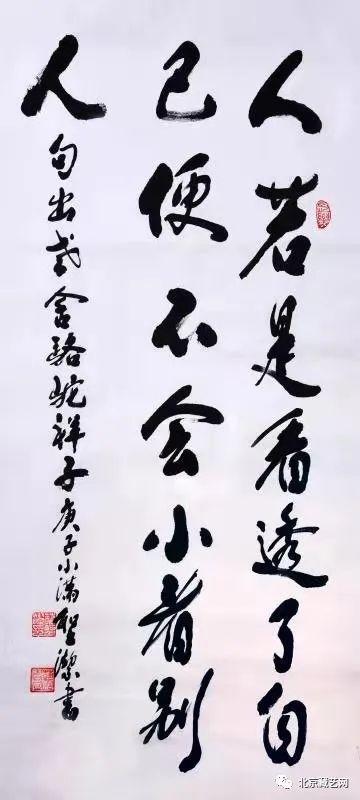 人若是看透了自
己便不会小看别
人
句出老舍骆驼祥子庚子小满聖潔書
北京藏艺网